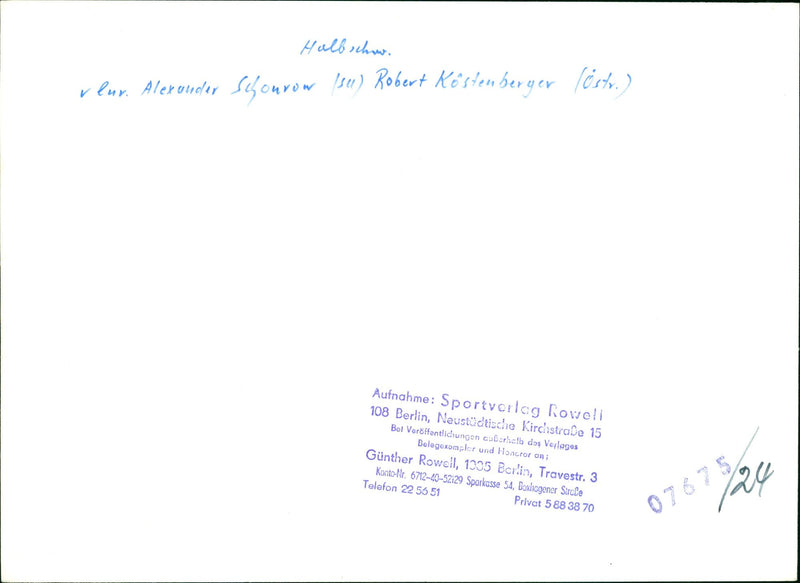 Halbschw.
v lnr. Alexander Schourow (SU) Robert Köstenberger (Östr.)
Aufnahme: Sportverlag Rowell
108 Berlin, Neustädtische Kirchstraße 15
Bei Veröffentlichungen außerhalb des Verlages
Belegexemplar und Honorar an:
Günther Rowell, 1035 Berlin, Travestr. 3
Konto-Nr. 6712-40-52129 Sparkasse 54, Boxhagener Straße
Telefon 22 56 51
Privat 5 88 38 70
07675/24